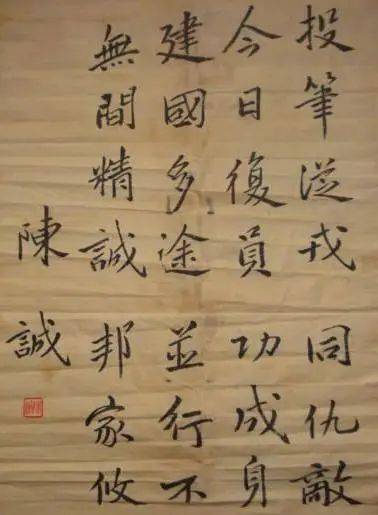 投筆從戎同仇敵
今日復員功成身
建國多途並行不
無間精誠邦家攸
陳誠